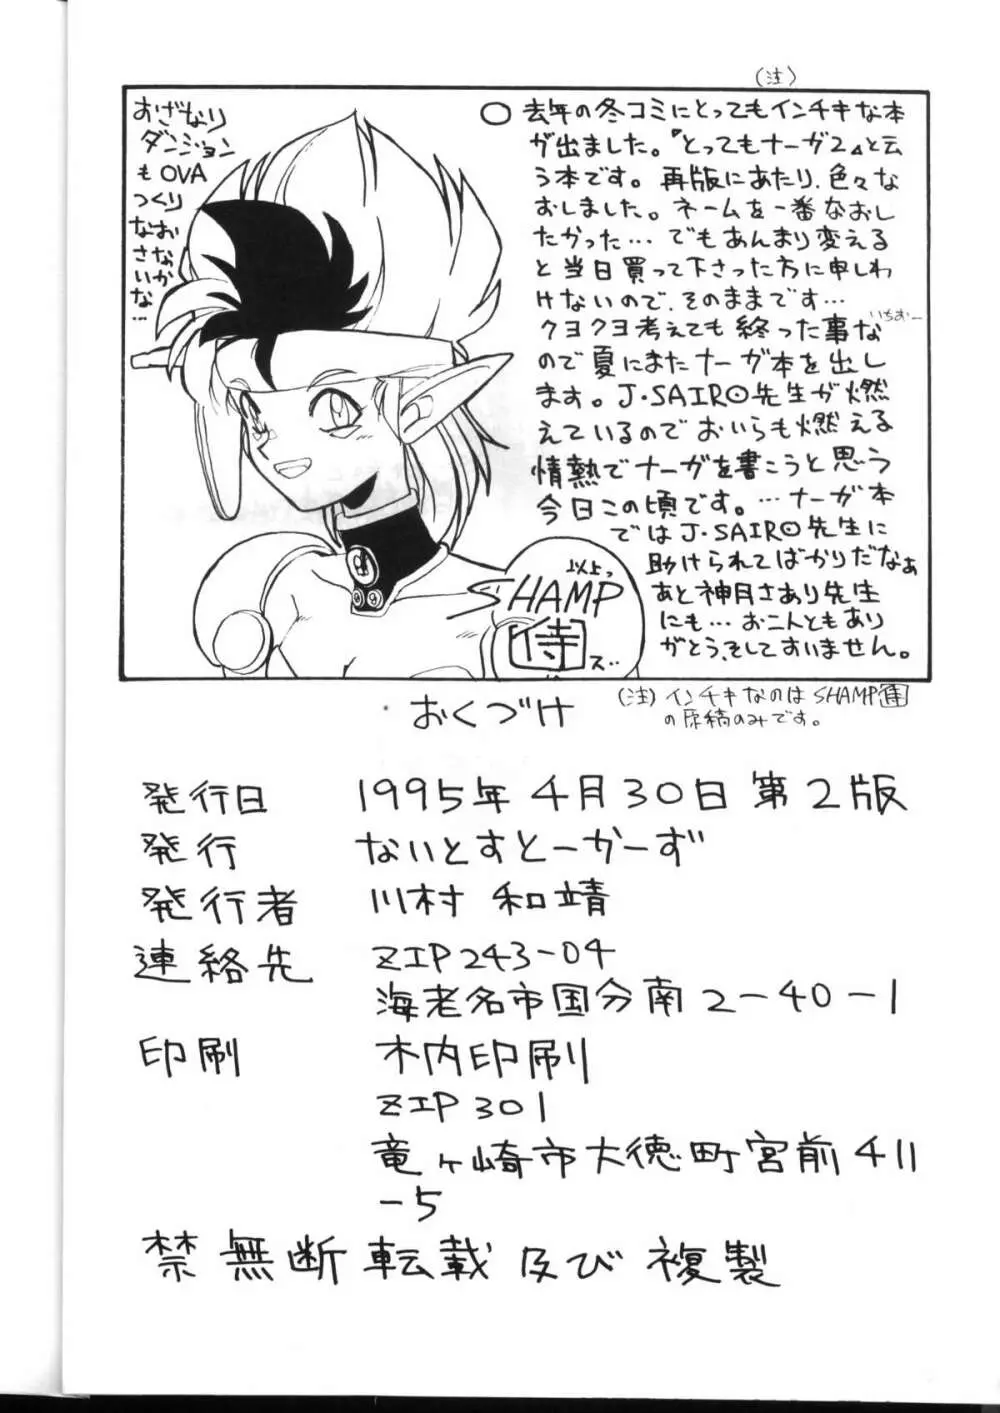 (注)
○去年の冬コミにとってもインチキな本
が出ました。『とってもナーガ2』と云
う本です。再版にあたり、色々な
おしました。ネームを一番なおし
たかった…でもあんまり変える
と当日買って下さった方に申しわ
けないので、そのままです…
いちおー
クヨクヨ考えても終った事な
ので夏にまたナーガ本を出し
ます。J・SAIRO先生が燃
えているのでおいらも燃える
情熱でナーガを書こうと思う
今日この頃です。…ナーガ本
ではJ・SAIRO先生に
助けられてばかりだなぁ
あと神月さあり先生
にも…お二人ともあり
がとう、そしてすいません。
おざなり
ダンジョン
もOVA
つくり
なおさないかな…
以上っ
SHAMP
侍
ズ
(注)インチキなのはSHAMP
の原稿のみです。
おくづけ
発行日 1995年4月30日第2版
発行 ないとすとーかーず
発行者 川村 和靖
連絡先 ZIP243-04
海老名市国分南2-40-1
印刷 木内印刷
ZIP301
竜ヶ崎市大徳町宮前411
-5
禁無断転載及び複製